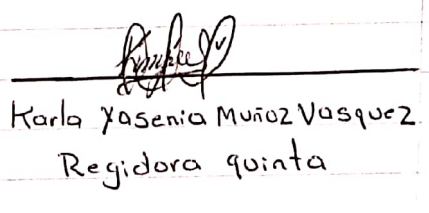 Karla Yasenia Muñoz Vasquez
Regidora quinta